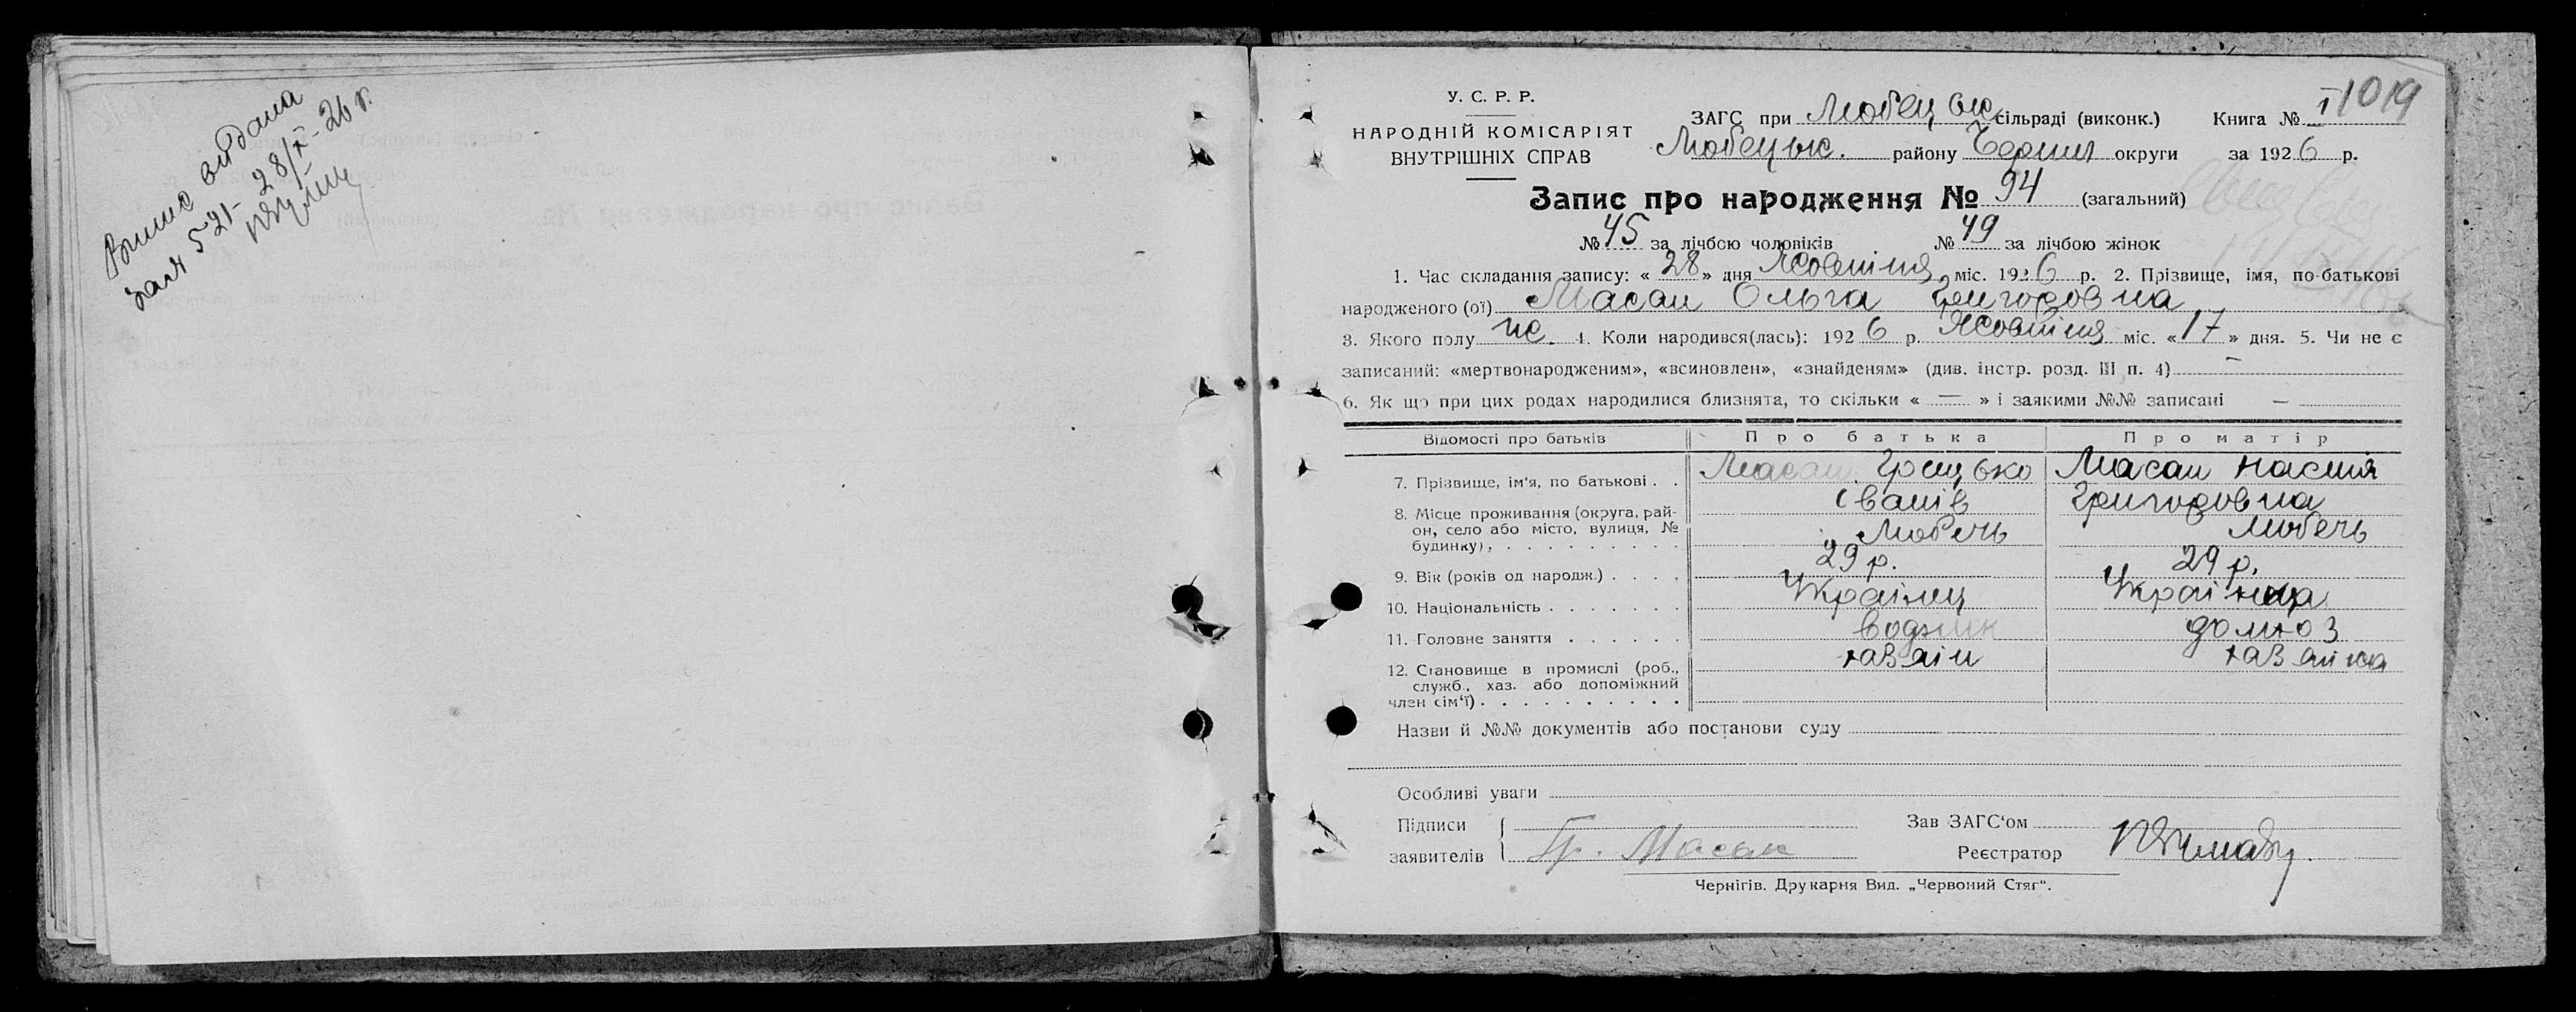 Випис видана
за № 521 - 28/X - 26 р.
У. С. Р. Р.
НАРОДНІЙ КОМІСАРІЯТ
ВНУТРІШНІХ СПРАВ
ЗАГС при Любецьк. сільраді (виконк.) Книга № 1 1019
Любецьк. району Черниг округи за 1926 р.
Запис про народження № 94 (загальний)
№ 45 за лічбою чоловіків № 49 за лічбою жінок
1. Час складання запису: « 28 » дня Жовтня міс. 1926 р. 2. Прізвище, імя, по-батькові
народженого (ої) Масан Ольга Григоровна
3. Якого полу ж. 4. Коли народився(лась): 1926 р. Жовтня міс. « 17 » дня. 5. Чи не є
записаний: «мертвонародженим», «всиновлен», «знайденям» (див. інстр. розд. III п. 4) —
6. Як що при цих родах народилися близнята, то скільки « — » і заякими №№ записані —
Відомості про батьків Про батька Про матір
7. Прізвище, ім'я, по батькові . . Масан Грицько Масан Настя
Іванів Григоровна
8. Місце проживання (округа, рай-
он, село або місто, вулиця, №
будинку), . . . . . . . . . . Любечь Любечь
9. Вік (років од народж.) . . . . 29 р. 29 р.
10. Національність . . . . . . . Українец Українца
11. Головне заняття . . . . . . Водник домхоз
12. Становище в промислі (роб., хазаін хазаіка
служб., хаз. або допоміжний
член сім'ї) . . . . . . . . . .
Назви й №№ документів або постанови суду
Особливі уваги
Підписи Зав ЗАГС'ом
заявителів Гр. Масан Реєстратор
Чернігів. Друкарня Вид. „Червоний Стяг“.